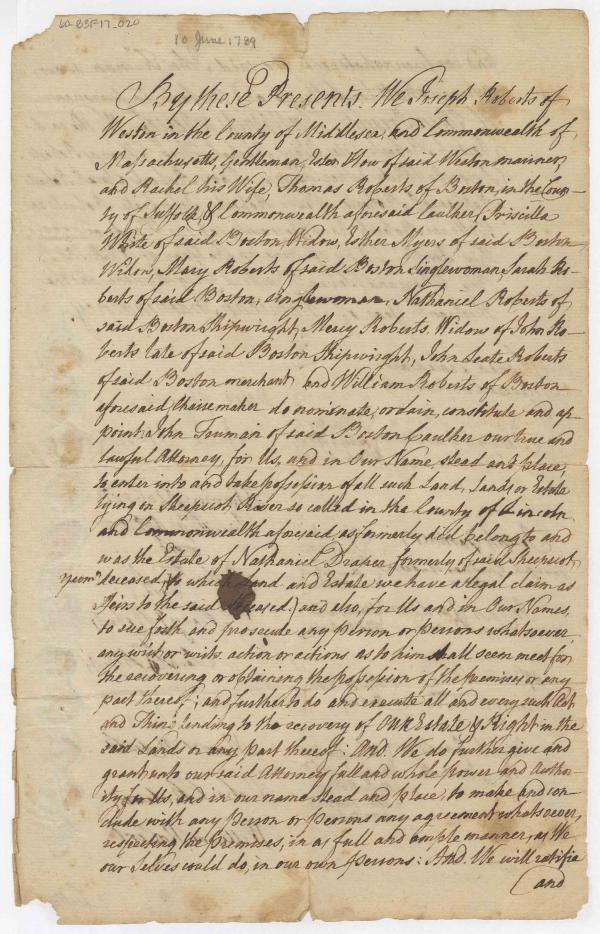 60-B3F17_020
10 June 1789
By these Presents. We Joseph Roberts of
Weston in the County of Middlesex, and Commonwealth of
Massachusetts, Gentleman, How of said Weston
and Rachel his Wife, Thomas Roberts of Boston, in the Coun-
ty of Suffolk, & Commonwealth aforesaid Caulker, Priscilla
White of said Boston, Widow, Esther Myers of said Boston
Widow, Mary Roberts of said Boston Singlewoman, Sarah Ro-
berts of said Boston, singlewoman, Nathaniel Roberts of
said Boston Shipwright, Mercy Roberts, Widow of John Ro-
berts late of said Boston Shipwright, John Roberts
of said Boston merchant, and William Roberts of Boston
aforesaid Chaisemaker do nominate, ordain, constitute and ap-
point John Truman of said Boston Caulker our true and
lawful Attorney, for Us, and in Our Name, stead and place,
to enter into and take possession of all such Land, Lands or Estate
lying on Sheepscot River so called in the County of Lincoln
and Commonwealth aforesaid, as formerly did belong to and
was the Estate of Nathaniel Draper formerly of said Sheepscot
yeomn deceased, (to which Land and Estate we have a legal claim as
Heirs to the said deceased,) and also, for Us and in Our Names,
to sue forth and prosecute any Person or Persons whatsoever
any writ or writs, action or actions as to him shall seem meet for
the recovering or obtaining the possession of the Premises or any
part thereof; and further to do and execute all and every such Act
and Thing tending to the recovery of OUR Estate & Right in the
said Lands or any Part thereof: And We do further give and
grant unto our said Attorney full and whole power and Autho-
rity for Us, and in our name stead and place, to make and con-
clude with any Person or Persons any agreement whatsoever,
respecting the Premises, in as full and ample manner, as We
our selves could do, in our own Persons: And We will ratifie
(and